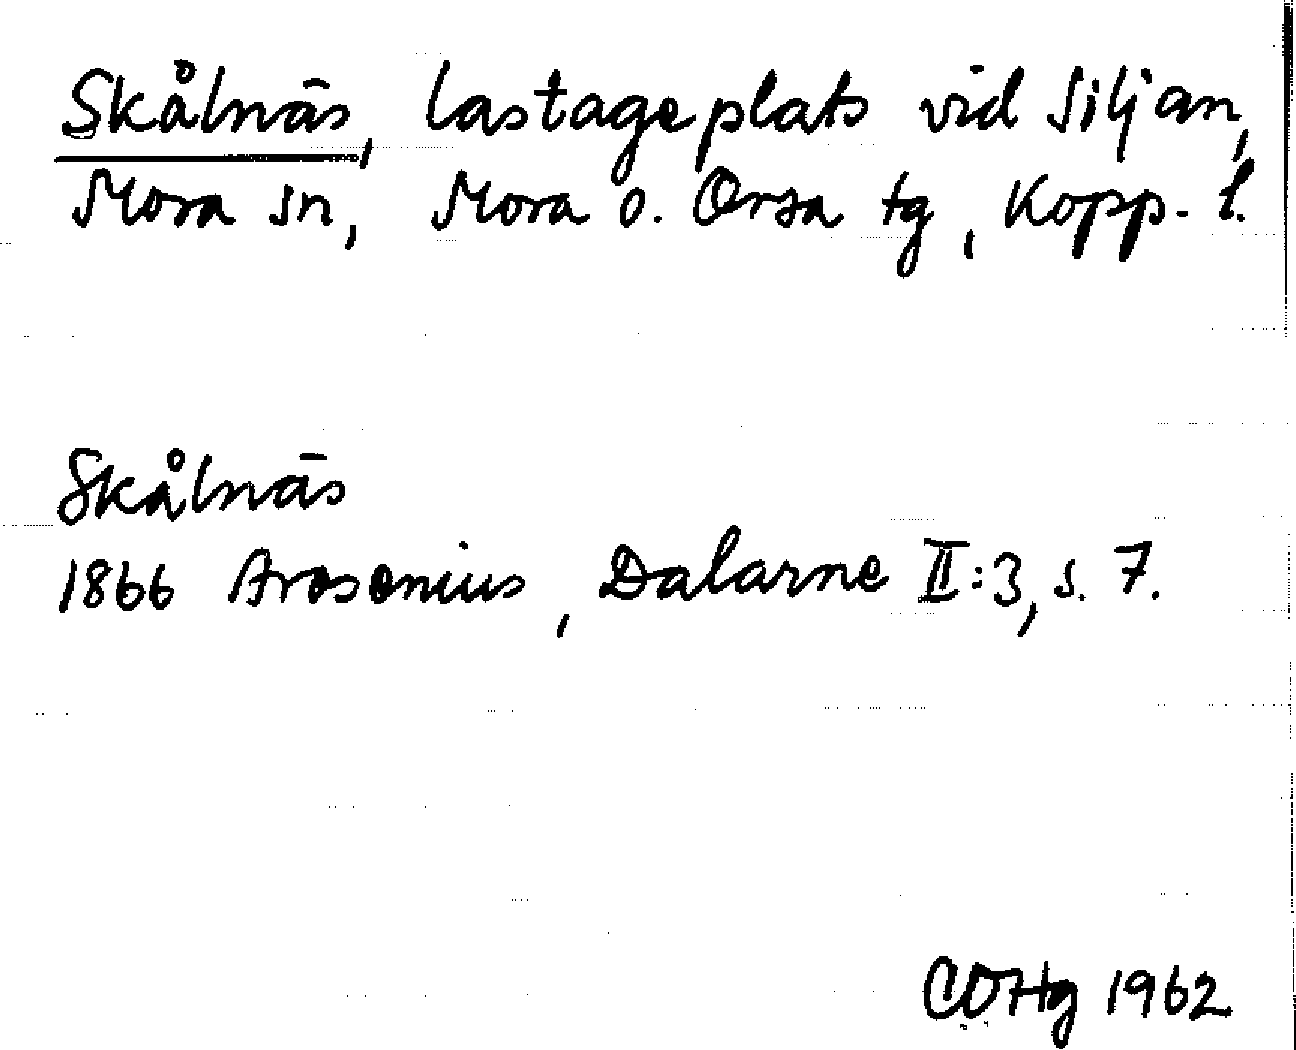 Skålnäs, lastageplats vid Siljan,
Mora sn, Mora o. Orsa tg, Kopp. l.
Skålnäs
1866 Arosenius, Dalarne II:3, s. 7.
COHg 1962